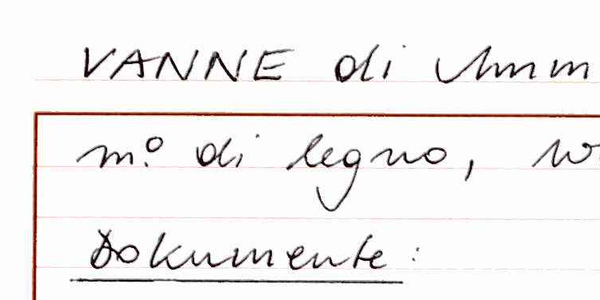 VANNE di
m.º di legno,
Dokumente: